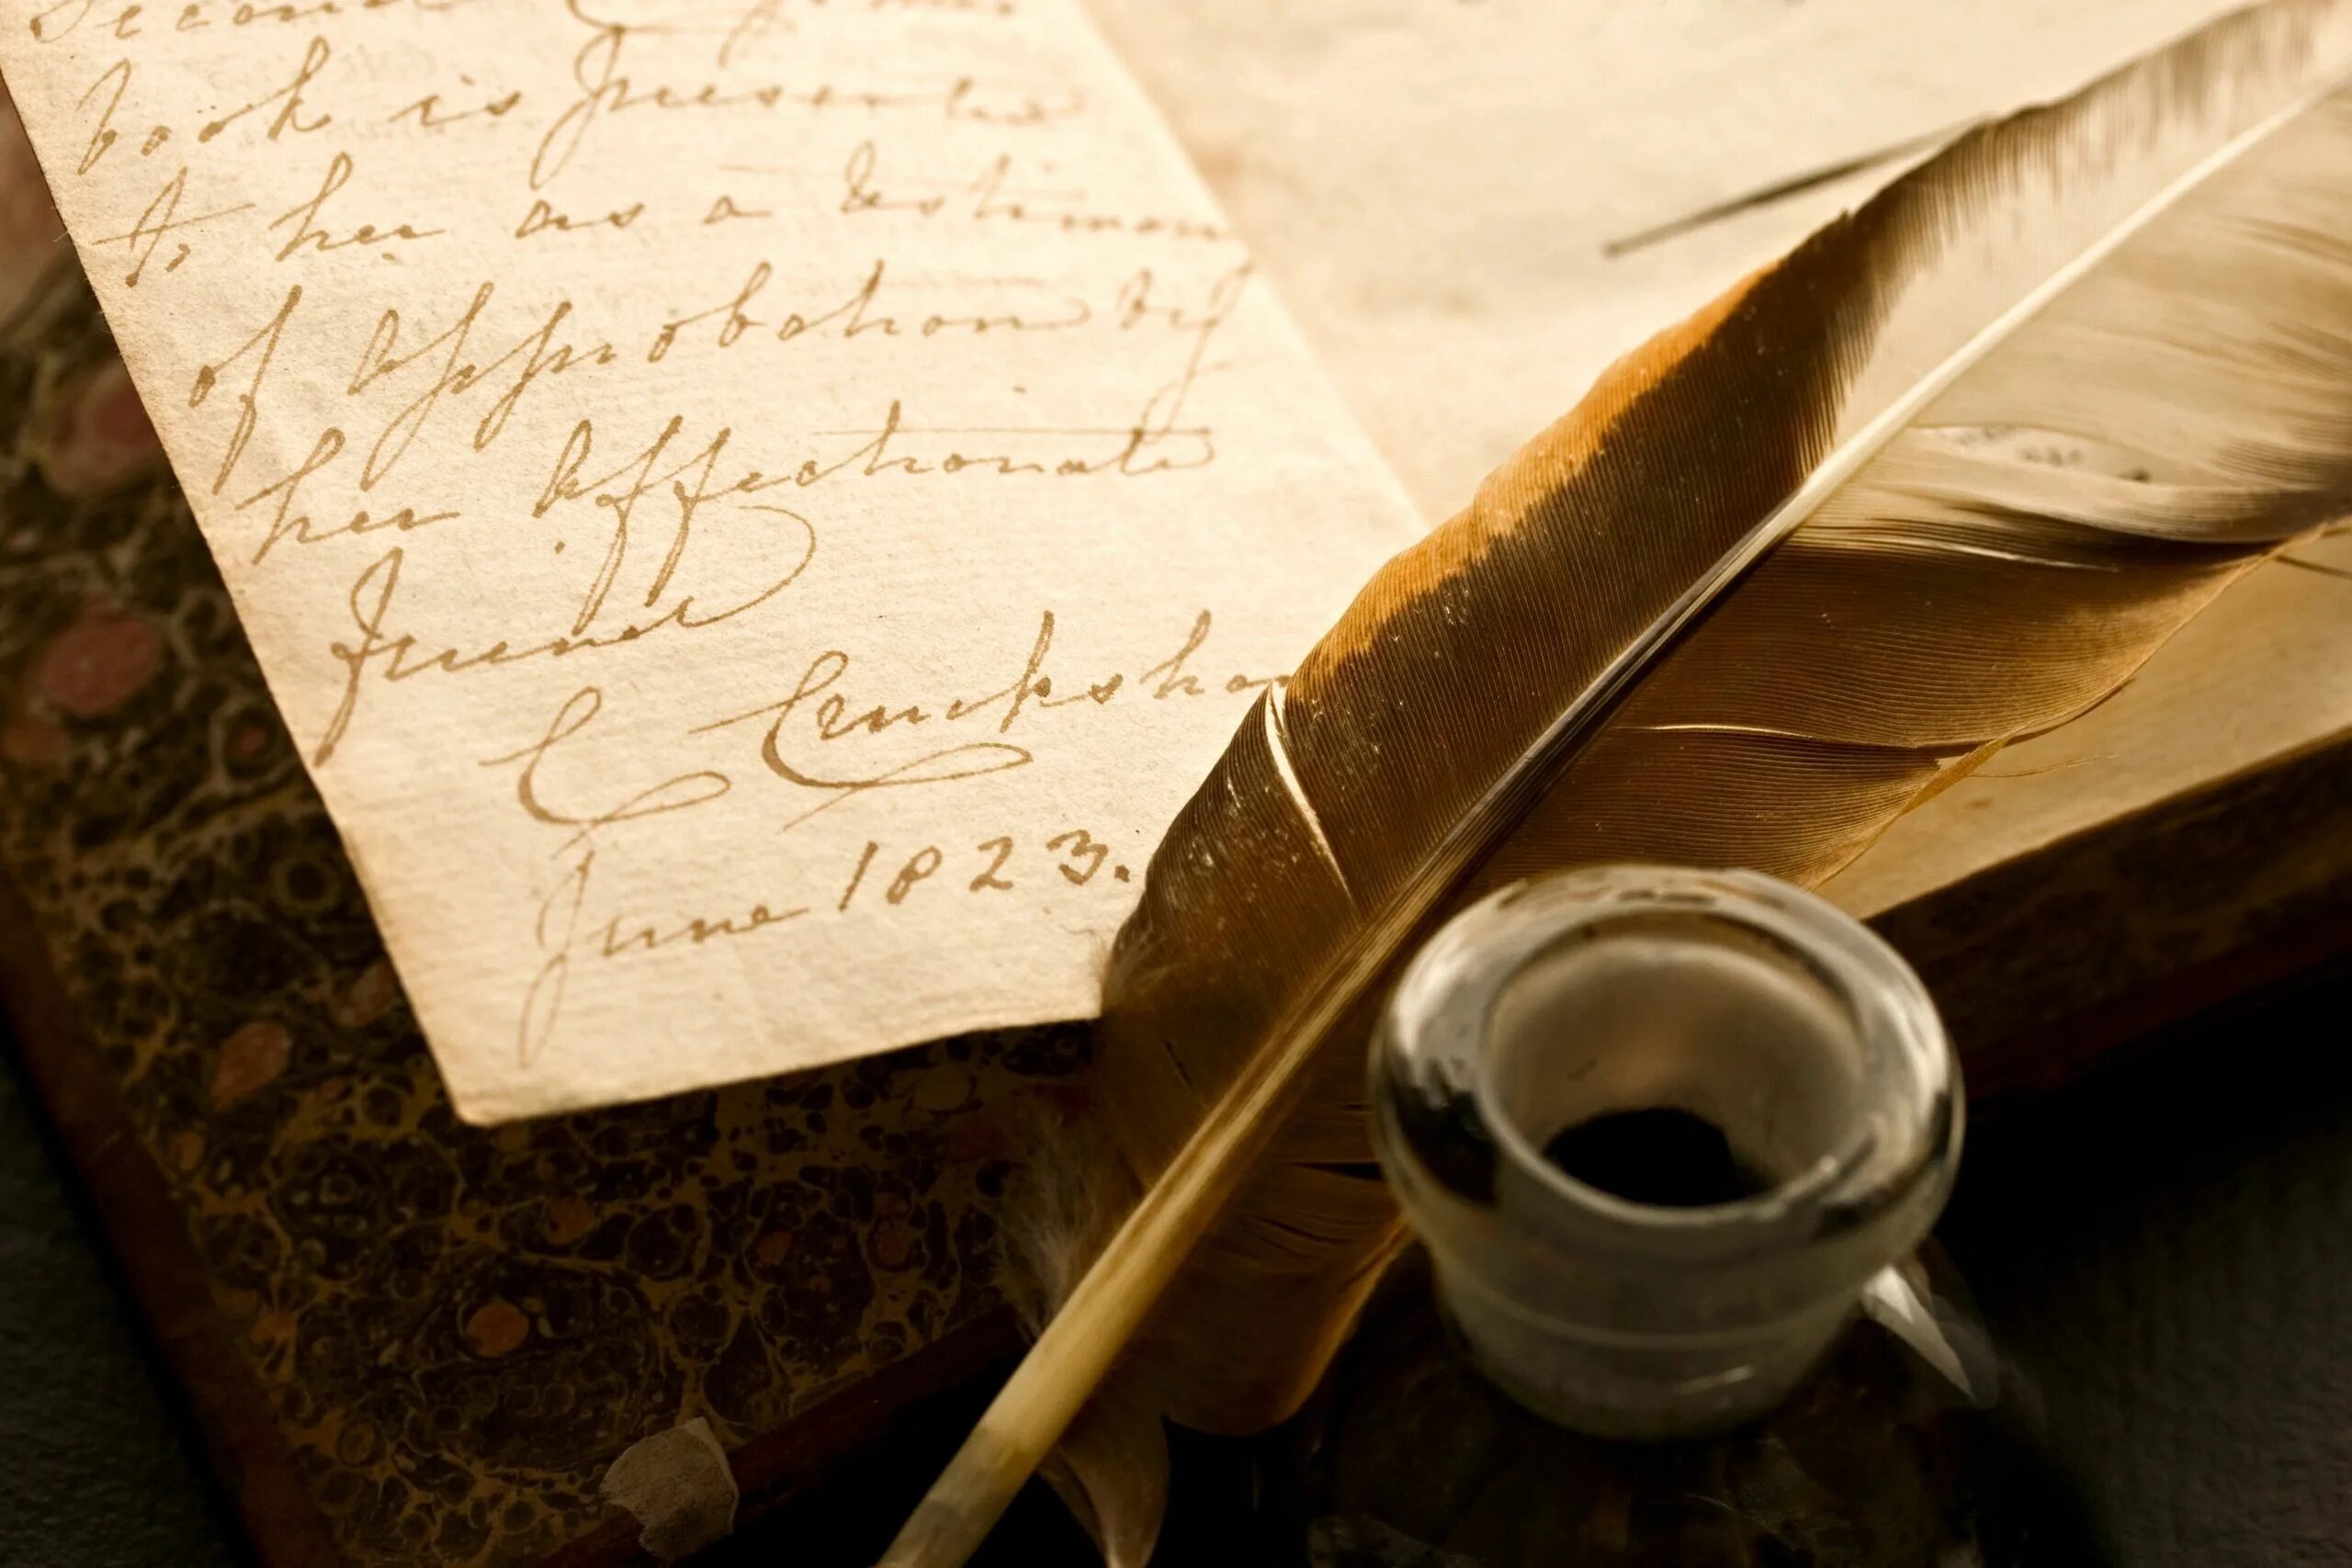 Second
book is presented
to her as a testimony
of approbation by
her affectionate
friend
C Cruikshan
June 1823.